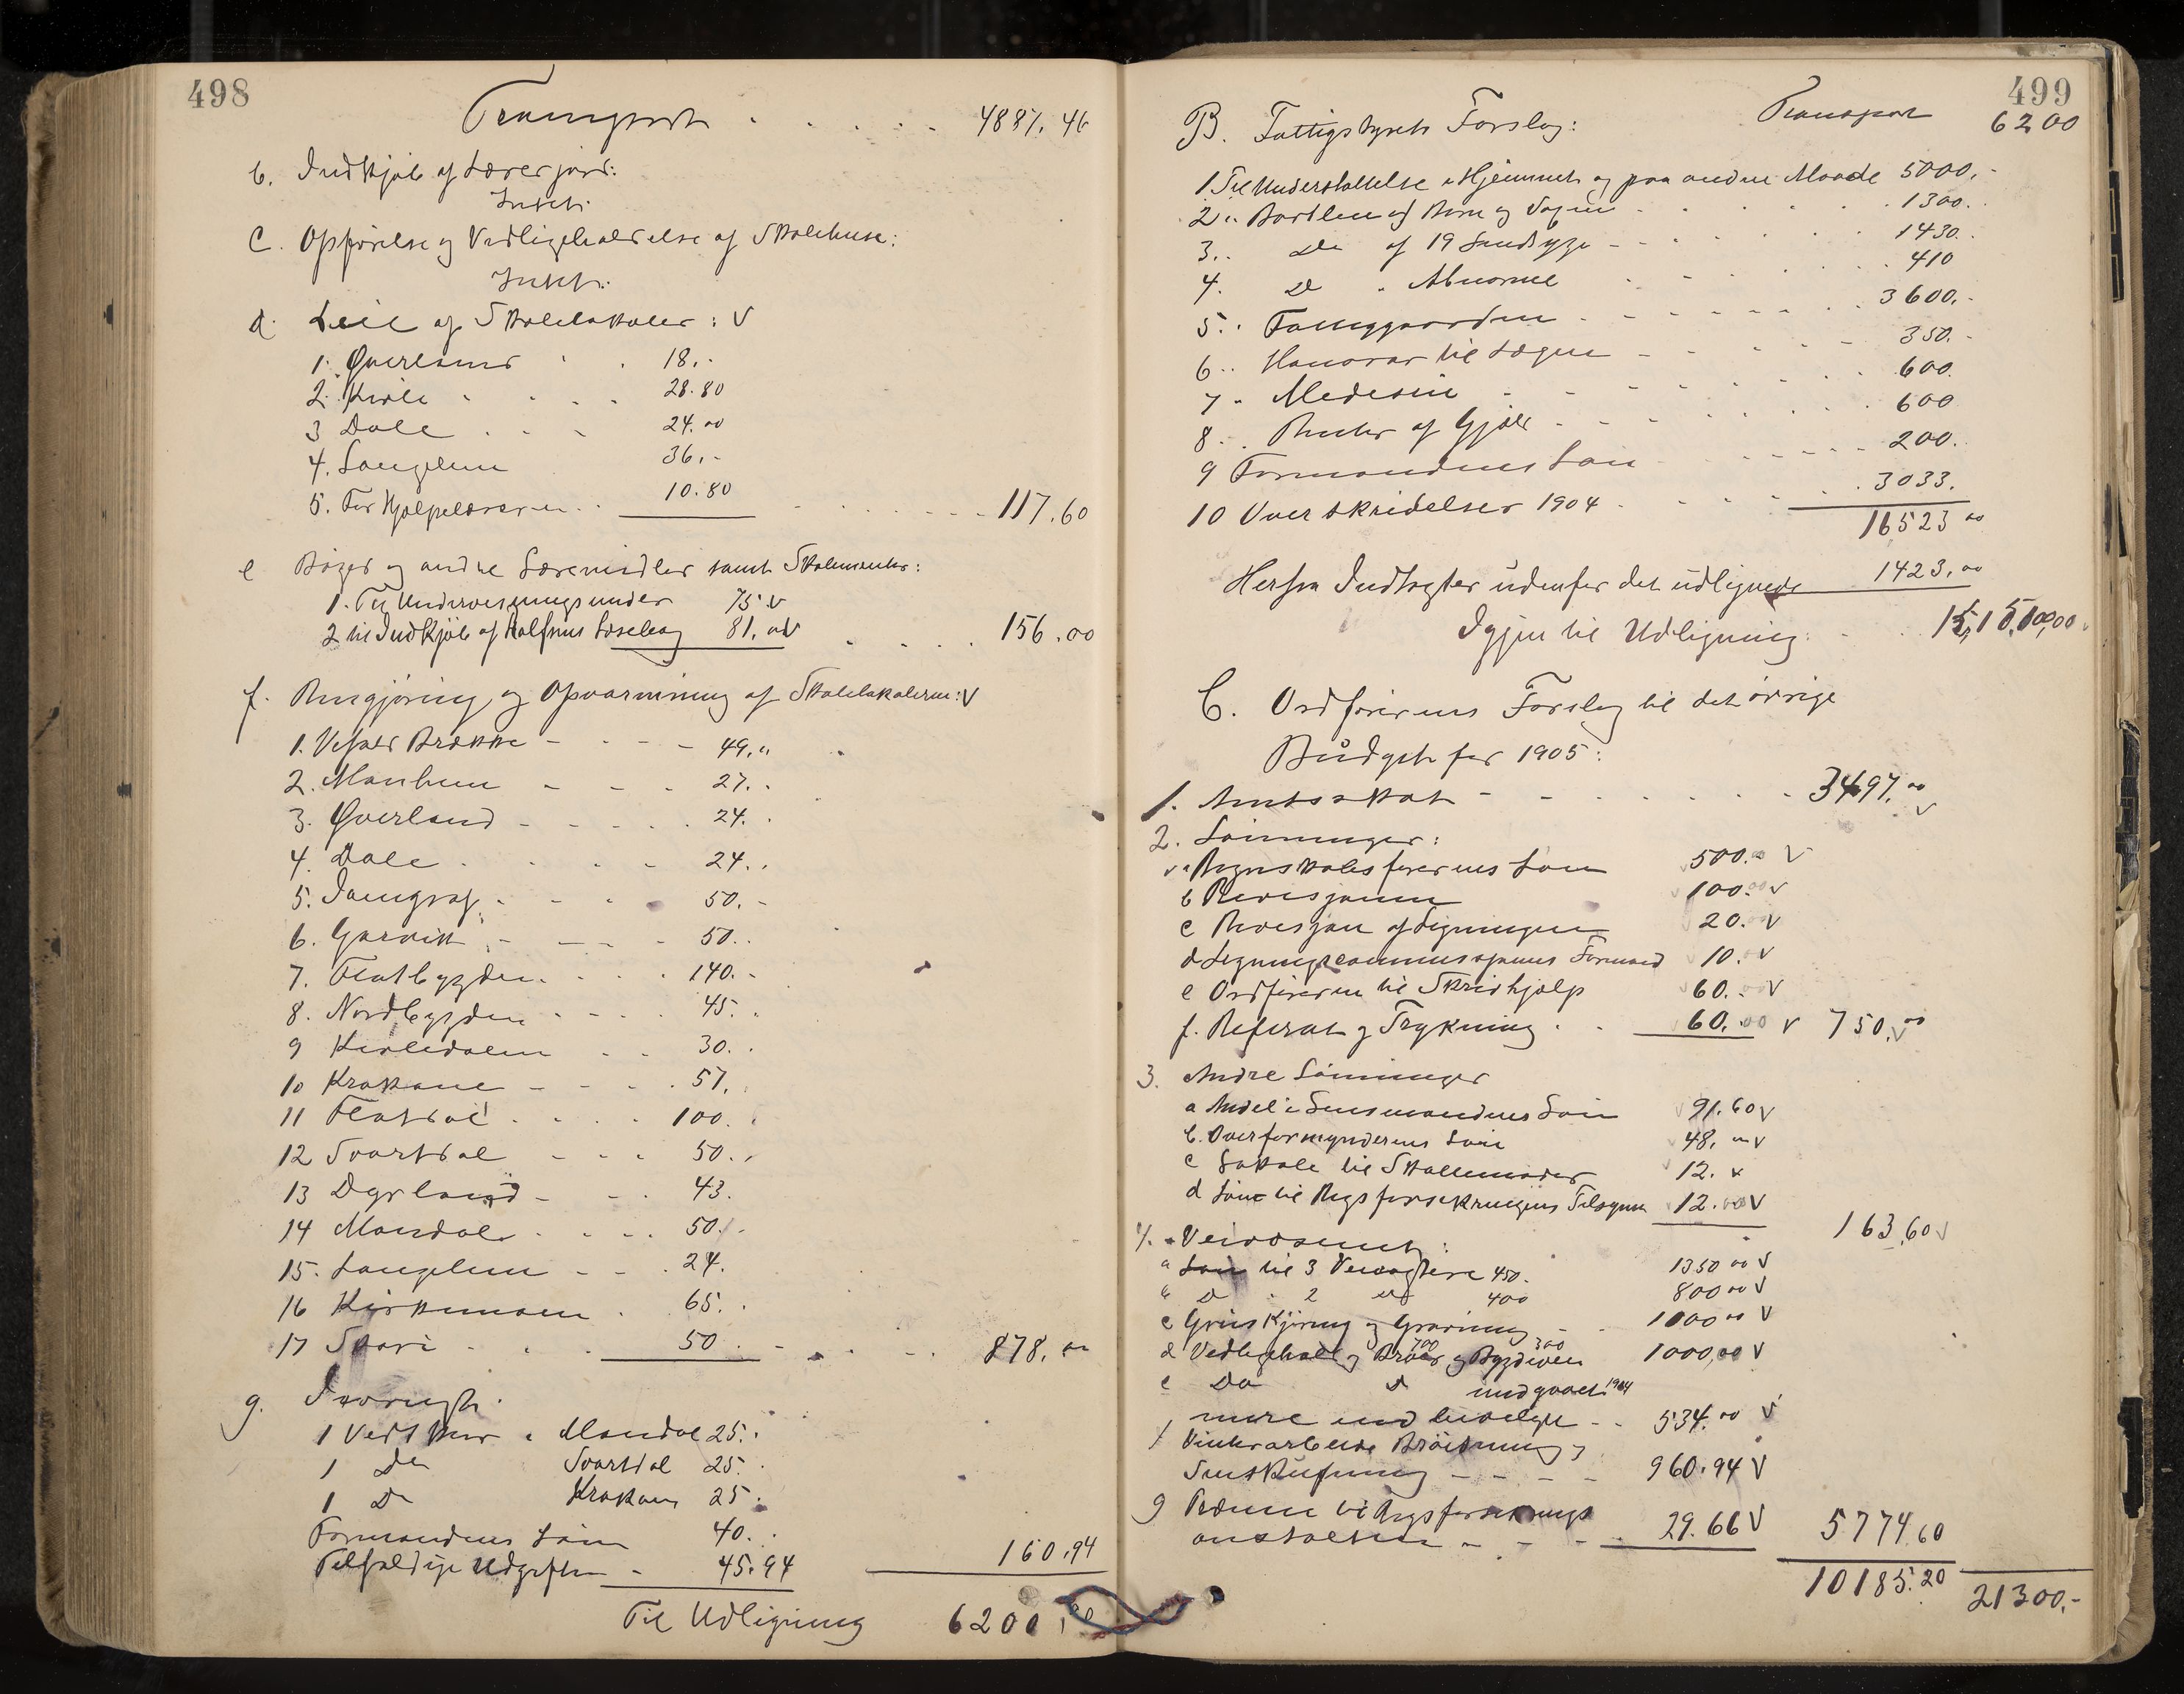 498
Transport . . . . . 4887.46
b. Indkjøb af Lærerjord:
Intet.
C. Opførelse og Vedligeholdelse af Skolehuse:
Intet.
d. Leie af Skolelokaler: V
1. Qverland . . 18.-
2. Kivle . . . . 28.80
3 Dale . . . 24.00
4. Langelim 36.-
5. For Hjælpelæreren . . 10.80 . . . . . 117.60
e Bøger og andre Læremidler samt Skolemønter:
1. Til Undervisnings 75 V
2 til Indkjøb af Rolfsens Læsebog 81.00 V . . . . 156.00
f. Rengjøring og Opvarmning af Skolelokalerne: V
1. Brække - - - - 49.
2. Manheim - - - 27.
3. Qverland - - - - 24.
4. Dale . . . - 24.
5. - - - 50.-
6. Garvik - - - 50.
7. Flatbygden . . . . 140.-
8. Nordbygden - - - - 45.
9 Kivledalen - - 30.
10 Krokane - - - . 57.
11 Flatdal . . . . 100.
12 Svartdal - - - 50.
13 Dyrland - - . 43.
14 Mandal . . . . 50.
15. Langelim - - . 24.
16 Kirkemoen . 65.
17 . . . 50 . - . . . 878.00
g. Iøvrigt.
1 Vedskur i Mandal 25.
1 Do Svartdal 25.
1 Do Krokane 25.
Formandens Løn 40.
Tilfældige Udgifter - 45.94 160.94
Til Udligning 6200.00
499
Transport 6200
B. Fattigstyrets Forslag:
1. Til Understøttelse i Hjemmet og paa anden Maade 5000.-
2 " Bortleie af Børn og Voxne . . . . 1300.
3. " Do af 19 Sindssyge - - . . . 1430.
4. D " Abnorme . - . . 410
5. " Fattiggaarden . - - - - - . 3600.-
6 " Honorar til Lægen - - - - - 350.-
7 " Medesin - - - - - - 600.
8 . Renter af Gjæld - - - . . . . 600
9 Formandens Løn - - - - - - 200.
10 Overskridelser 1904 . . . . . 3033.
16523 00
Herfra Indtægter udenfor det udlignede 1423.00
Igjen til Udligning: 15,100,00
C. Ordførerens Forslag til det øvrige
Budget for 1905:
1. Amtsskat - - - . . . . 3497.00 V
2. Lønninger:
a Regnskabsførerens Løn 500.00 V
b Revisjonen 100.00 V
c Revisjon af Ligningen 20.00 V
d Ligningscommissjonens Formand 10. V
e Ordføreren til Skrivhjælp 60.- V
f. Referat og Trykning . . 60.00 V 750.00 V
3. Andre Lønninger
a Andel i Lensmandens Løn 91.60 V
b. Overformynderens Løn 48.00 V
c Lokale til Skattemøder 12. V
d Løn til Rigsforsikringens Tilsynsm 12.00 V
163.60 V
4. Veivæsenet:
a Løn til 3 Veivogtere 450. 1350 00 V
" D " 2 Do 400 800 00 V
c Gruskjøring og Graving - - 1000 00 V
d Vedligehold af Broer 700 og Bygdveien 300 1000,00 V
e Do D medgaaet 1904
mere end bevilget - - 534.00 V
f Vinterarbeide Brøitning og
Sneskufning - - - - 960.94 V
g Præmie til Rigsforsikrings
anstalten - - - . 29.66 V 5774.60
10185.20 21300.-